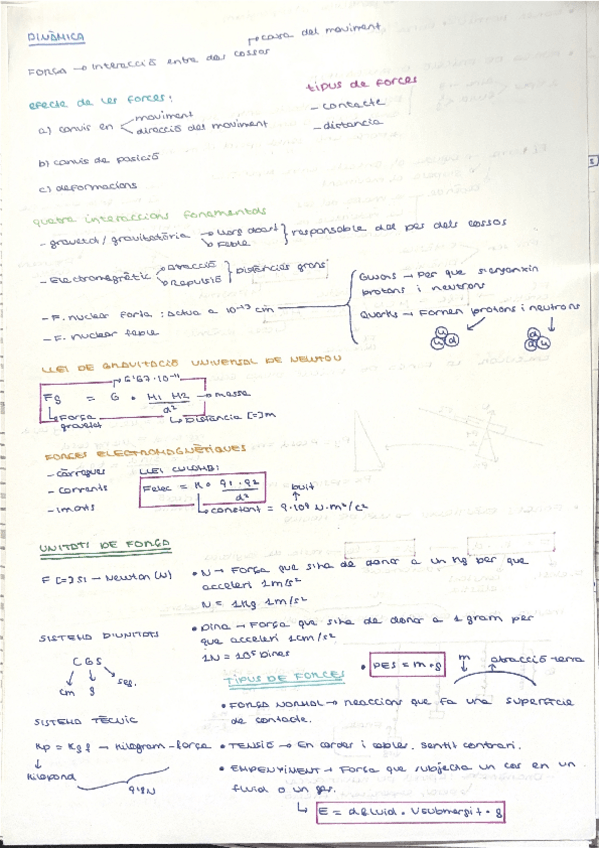 DINÀMICA
FORÇA → Interacció entre dos cossos
→ causa del moviment
efecte de les forces:
a) canvis en moviment
direcció del moviment
b) canvis de posició
c) deformacions
tipus de forces
- contacte
- distancia
quatre interaccions fonamentals
- gravetat / gravitatòria → llarg abast
→ Feble
responsable del pes dels cossos
- Electromagnètic Atracció
Repulsió
Distàncies grans
- F. nuclear forta : actua a 10⁻¹³ cm
- F. nuclear feble
Gluons → Per que s'enganxin
protons i neutrons
Quarks → Formen protons i neutrons
u u d
d d u
LLEI DE GRAVITACIÓ UNIVERSAL DE NEWTON
→ 6'67·10⁻¹¹
Fg = G · M1 M2 / d² → massa
→ Força
gravetat
→ Distància [=] m
FORCES ELECTROMAGNÈTIQUES
- càrregues
- corrents
- imants
LLEI CULOMB:
Felec = K · q1 · q2 / d²
buit
→ constant = 9·10⁹ N·m²/c²
UNITATS DE FORÇA
F [=] SI → Newton (N)
• N → Força que s'ha de donar a un Kg per que
acceleri 1m/s²
N = 1Kg 1m/s²
SISTEMA D'UNITATS
CGS
cm g seg.
• Dina → Força que s'ha de donar a 1 gram per
que acceleri 1cm/s²
1N = 10⁵ Dines
TIPUS DE FORCES
• PES = m · g
m atracció terra
• FORÇA NORMAL → reaccions que fa una superfície
de contacte.
SISTEMA TÈCNIC
Kp = Kgf → Kilogram-força
Kilopond
9'8N
• TENSIÓ → En cordes i cables. sentit contrari.
• EMPENYIMENT → Força que subjecta un cos en un
fluid o un gas.
→ E = dfluid · Vsubmergit · g